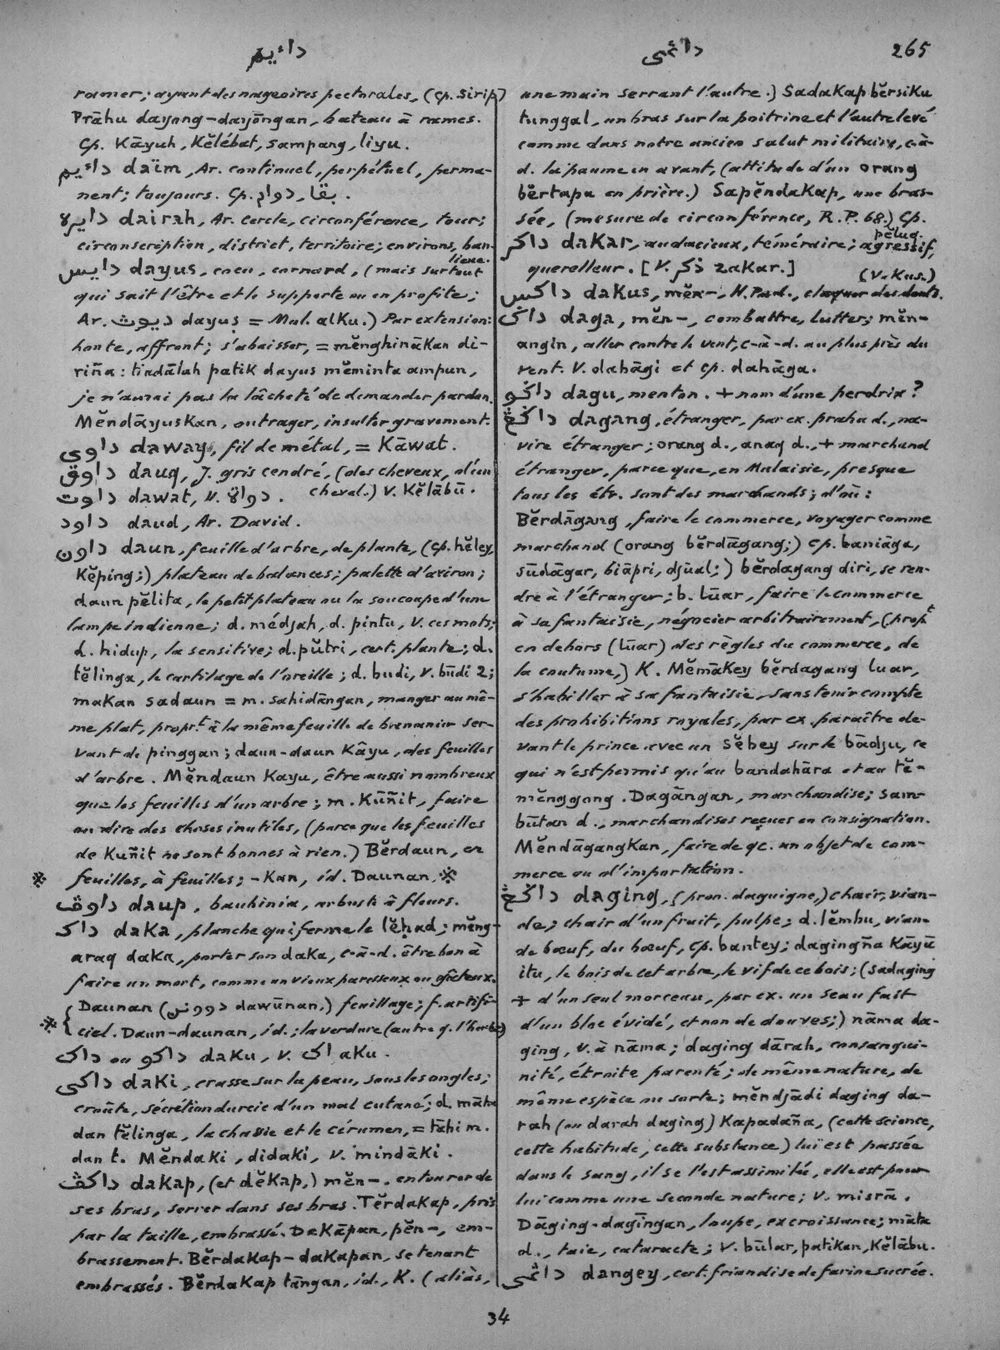 دائيم
داغى
265
ramer; ayant des nageoires pectorales, (cp. sirip)
Prāhu dayong-dayōngan, bateau à rames.
Cp. Kāyuh, Kĕlébat, sampang, liyu.
دائيم daïm, Ar. continuel, perpétuel, perma-
nent; toujours. Cp. دوام, بقا.
دايره dairah, Ar. cercle, circonférence, tour;
circonscription, district, territoire; environs, ban-
lieue.
دايس dayus, cocu, cornard, (mais surtout
qui sait l'être et le supporte ou en profite;
Ar. ديوث dayus = Mal. alku.) Par extension:
honte, affront; s'abaisser, = mĕnghinākan di-
riña: tiadālah patik dayus mĕminta ampun,
je n'aurai pas la lâcheté de demander pardon.
Mĕndāyuskan, outrager, insulter gravement.
داوى daway, fil de métal, = Kāwat.
داوق dauq, J. gris cendré, (des cheveux, d'un
cheval.) V. Kĕlābū.
داوت dawat, V. دواة.
داود daud, Ar. David.
داون daun, feuille d'arbre, de plante, (cp. hĕley,
Kĕping;) plateau de balances; palette d'aviron;
daun pĕlita, le petit plateau ou la soucoupe d'une
lampe indienne; d. médjah, d. pintu, V. ces mots;
d. hidup, la sensitive; d. pŭtri, cert. plante; d.
tĕlinga, le cartilage de l'oreille; d. budi, V. būdi 2;
makan sadaun = m. sahidāngan, manger au mê-
me plat, propr.t à la même feuille de bananier ser-
vant de pinggan; daun-daun Kāyu, des feuilles
d'arbre. Mĕndaun Kayu, être aussi nombreux
que les feuilles d'un arbre; m. Kūñit, faire
ou dire des choses inutiles, (parce que les feuilles
de Kuñit ne sont bonnes à rien.) Bĕrdaun, en
※ feuilles, à feuilles; -Kan, id. Daunan. ※
داوڤ daup, bauhinia, arbuste à fleurs.
داک daka, planche qui ferme le lĕhad; mĕng-
araq daka, porter son daka, c-à-d. être bon à
faire un mort, comme un vieux paresseux ou gâteux.
Daunan (دوونن dawūnan,) feuillage; f. artifi-
※ ciel. Daun-daunan, id.; la verdure (autre q. l'herbe)
داک ou داکو daku, V. اک aku.
داکى daki, crasse sur la peau, sous les ongles;
croûte, sécrétion durcie d'un mal cutané; d. māta
dan tĕlinga, la chassie et le cérumen, = tāhi m.
dan t. Mĕndaki, didaki, V. mindāki.
داکڤ dakap, (et dĕkap,) mĕn-, entourer de
ses bras, serrer dans ses bras. Tĕrdakap, pris
par la taille, embrassé. Dakāpan, pĕn-, em-
brassement. Bĕrdakap-dakapan, se tenant
embrassés. Bĕrdakap tāngan, id., K. (aliàs,
une main serrant l'autre.) Sadakap bĕrsiku
tunggal, un bras sur la poitrine et l'autre levé
comme dans notre ancien salut militaire, c-à-
d. la paume en avant, (attitude d'un orang
bĕrtapa en prière.) Sapĕndakap, une bras-
sée, (mesure de circonférence, R.P. 68.) Cp.
pĕluq.
داکر dakar, audacieux, téméraire; agressif,
querelleur. [V. ذکر zakar.]
(V. Kus.)
داکس dakus, mĕn-, H. Pad., claquer des dents.
داݢ daga, mĕn-, combattre, lutter; mĕn-
angin, aller contre le vent, c-à-d. au plus près du
vent. V. dahāgi et cp. dahāga.
داݢو dagu, menton. + nom d'une perdrix?
داݢڠ dagang, étranger, par ex. prahu d., na-
vire étranger; orang d., anaq d., + marchand
étranger, parce que, en Malaisie, presque
tous les étr. sont des marchands; d'où:
Bĕrdāgang, faire le commerce, voyager comme
marchand (orang bĕrdāgang;) cp. baniāga,
sūdāgar, biāpri, djūal;) bĕrdagang diri, se ren-
dre à l'étranger; b. lūar, faire le commerce
à sa fantaisie, négocier arbitrairement, (propt
en dehors (lūar) des règles du commerce, de
la coutume,) K. Mĕmākey bĕrdagang luar,
s'habiller à sa fantaisie, sans tenir compte
des prohibitions royales, par ex. paraître de-
vant le prince avec un sĕbey sur le bādju, ce
qui n'est permis qu'au bandahāra et au tĕ-
mĕnggong. Dagāngan, marchandise; sam-
būtan d., marchandises reçues en consignation.
Mĕndāgangkan, faire de qc. un objet de com-
merce ou d'importation.
داݢڠ daging, (pron. daguigne,) chair, vian-
de; chair d'un fruit, pulpe; d. lĕmbu, vian-
de de bœuf, du bœuf, cp. bantey; dagingña Kāyū
itu, le bois de cet arbre, le vif de ce bois; (sadaging
+ d'un seul morceau, par ex. un seau fait
d'un bloc évidé, et non de douves;) nāma da-
ging, V. à nāma; daging dārah, consangui-
nité, étroite parenté; de même nature, de
même espèce ou sorte; mĕndjādi daging da-
rah (ou darah daging) Kapadaña, (cette science,
cette habitude, cette substance) lui est passée
dans le sang, il se l'est assimilée, elle est pour
lui comme une seconde nature; V. misrā.
Dāging-dagīngan, loupe, excroissance; māta
d., taie, cataracte; V. būlar, patikan, Kĕlābu.
داغى dangey, cert. friandise de farine sucrée.
34